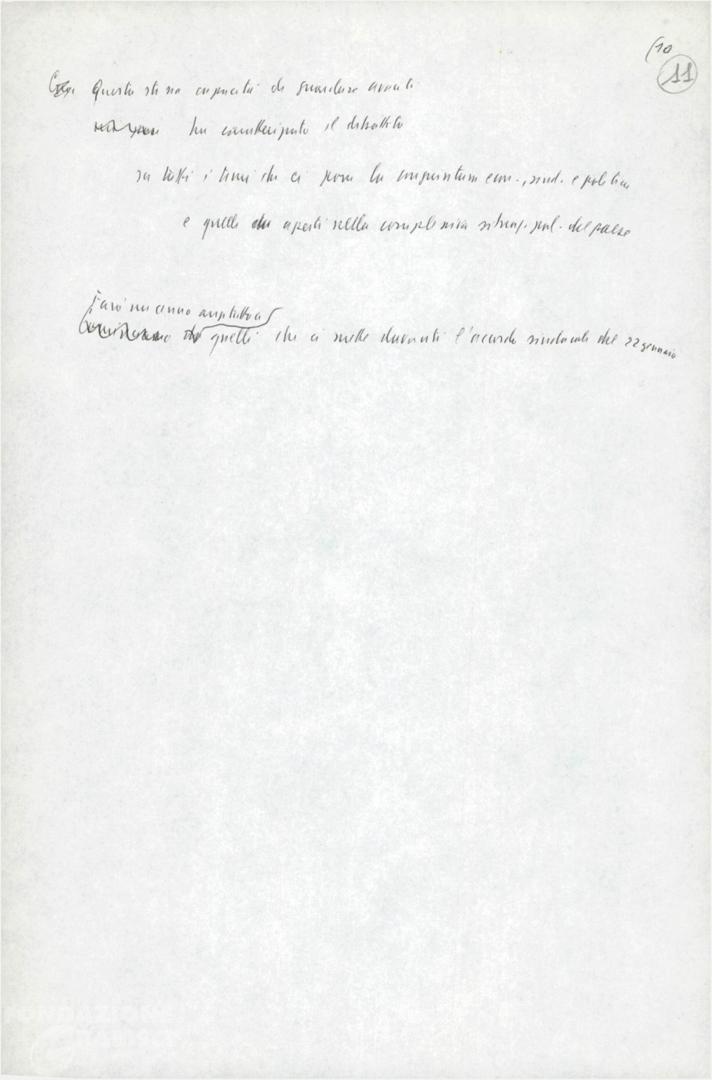 (10
11
Questa stessa capacità di guardare avanti
ha caratterizzato il dibattito
su tutti i temi che ci pone la congiuntura econ., sind. e politica
e quelli aperti nella complessiva situaz. pol. del paese
Farò un cenno
quelli che ci mette davanti l'accordo sindacale del 22 gennaio
FONDAZIONE